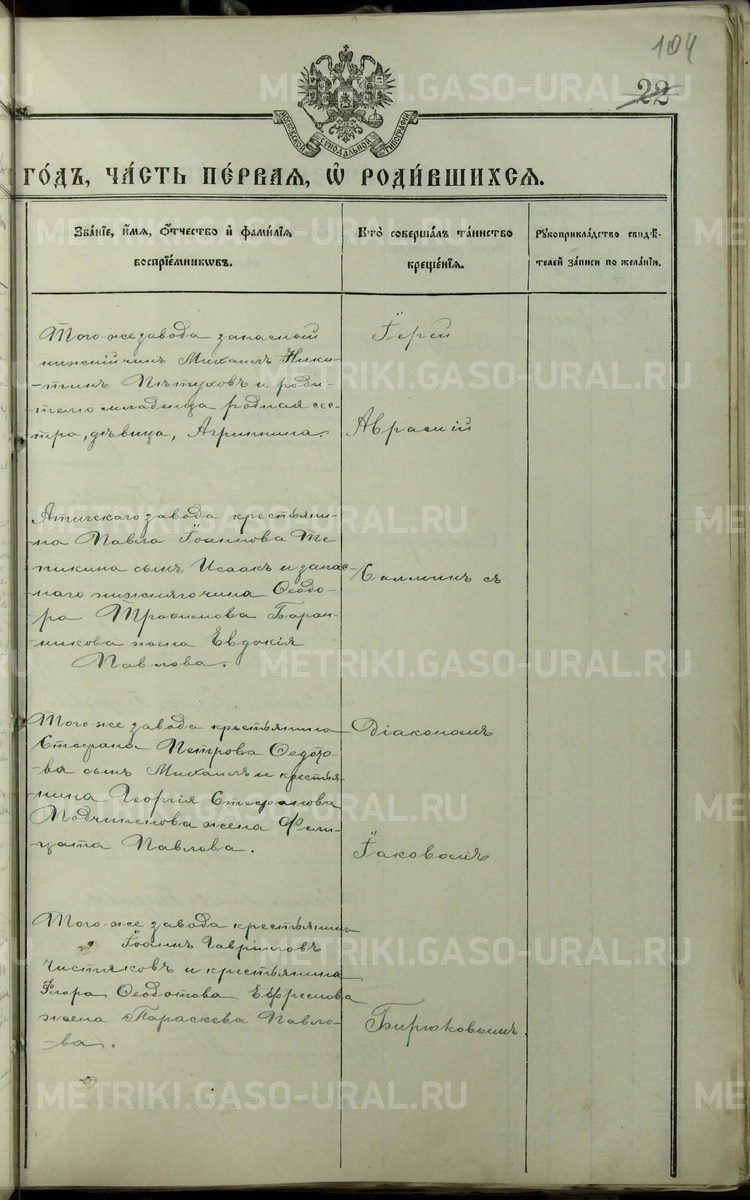 104
22
МОСКОВСКОЙ СѴНОДАЛЬНОЙ ТИПОГРАФІИ
ГО́ДЪ, ЧА́СТЬ ПЕ́РВАѦ, Ѡ҆ РОДИ́ВШИХСѦ.
Зва́нїе, и҆́мѧ, ѻ҆́тчество и҆ фами́лїѧ
воспрїе́мникѡвъ.
Кто̀ соверша́лъ та́инство
креще́нїѧ.
Рꙋкоприкла́дство свидѣ́-
телей за́писи по жела́нїю.
Того-же завода запасный
нижній чинъ Михаилъ Ники-
тинъ Пѣтуховъ и роди-
телю младенца родная сес-
тра, дѣвица, Агриппина.
Іерей
Аврамій
Атигскаго завода крестьяни-
на Павла Іоаннова
сынъ Исаакъ и запас-
наго нижняго чина Ѳеодо-
ра Трофимова Баран-
никова жена Евдокія
Павлова.
съ
Того-же завода крестьянина
Стефана Петрова Ѳедото-
ва сынъ Михаилъ и крестья-
нина Георгія Стефанова
жена Фели-
цата Павлова.
Діакономъ
Іаковомъ
Того-же завода крестьянинъ
Іоаннъ Гавріиловъ
Чистяковъ и крестьянина
Флора Ѳеодотова Ефремова
жена Параскева Павло-
ва.
Бирюковымъ.
METRIKI.GASO-URAL.RU